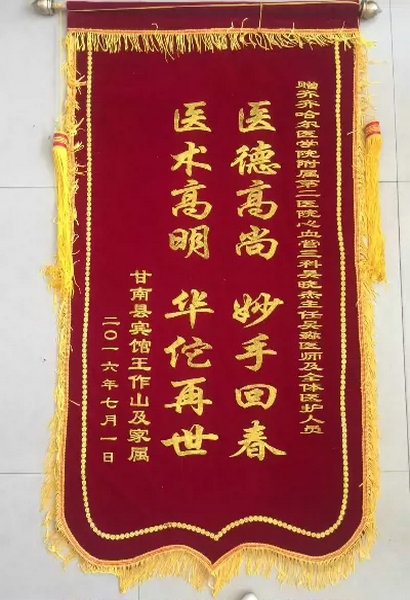 赠齐齐哈尔医学院附属第二医院心血管三科吴晓杰主任吴薇医师及全体医护人员
医德高尚 妙手回春
医术高明 华佗再世
甘南县宾馆王作山及家属
二〇一六年七月一日